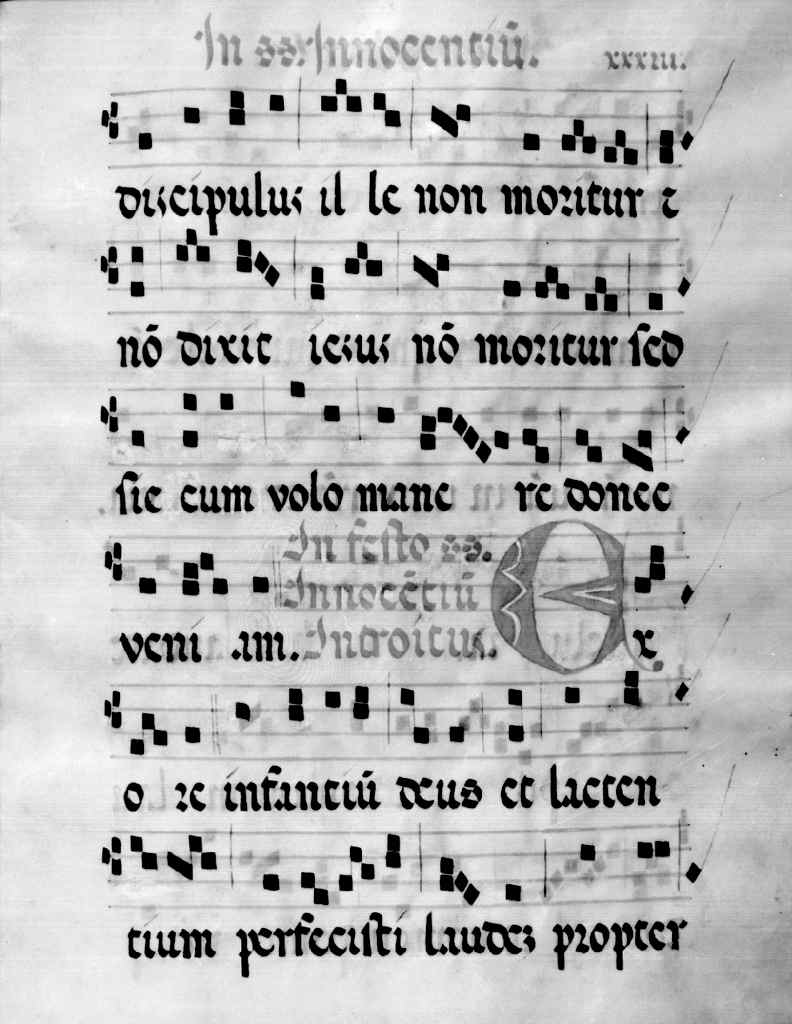 In ss. Innocentiū. xxxiii.
discipulus il le non moritur ⁊
nō dixit iesus nō moritur sed
sic eum volo mane re donec
In festo ss.
Innocētiū
veni am. Introitus. Ex
o re infantiū deus et lacten
tium perfecisti laudez propter